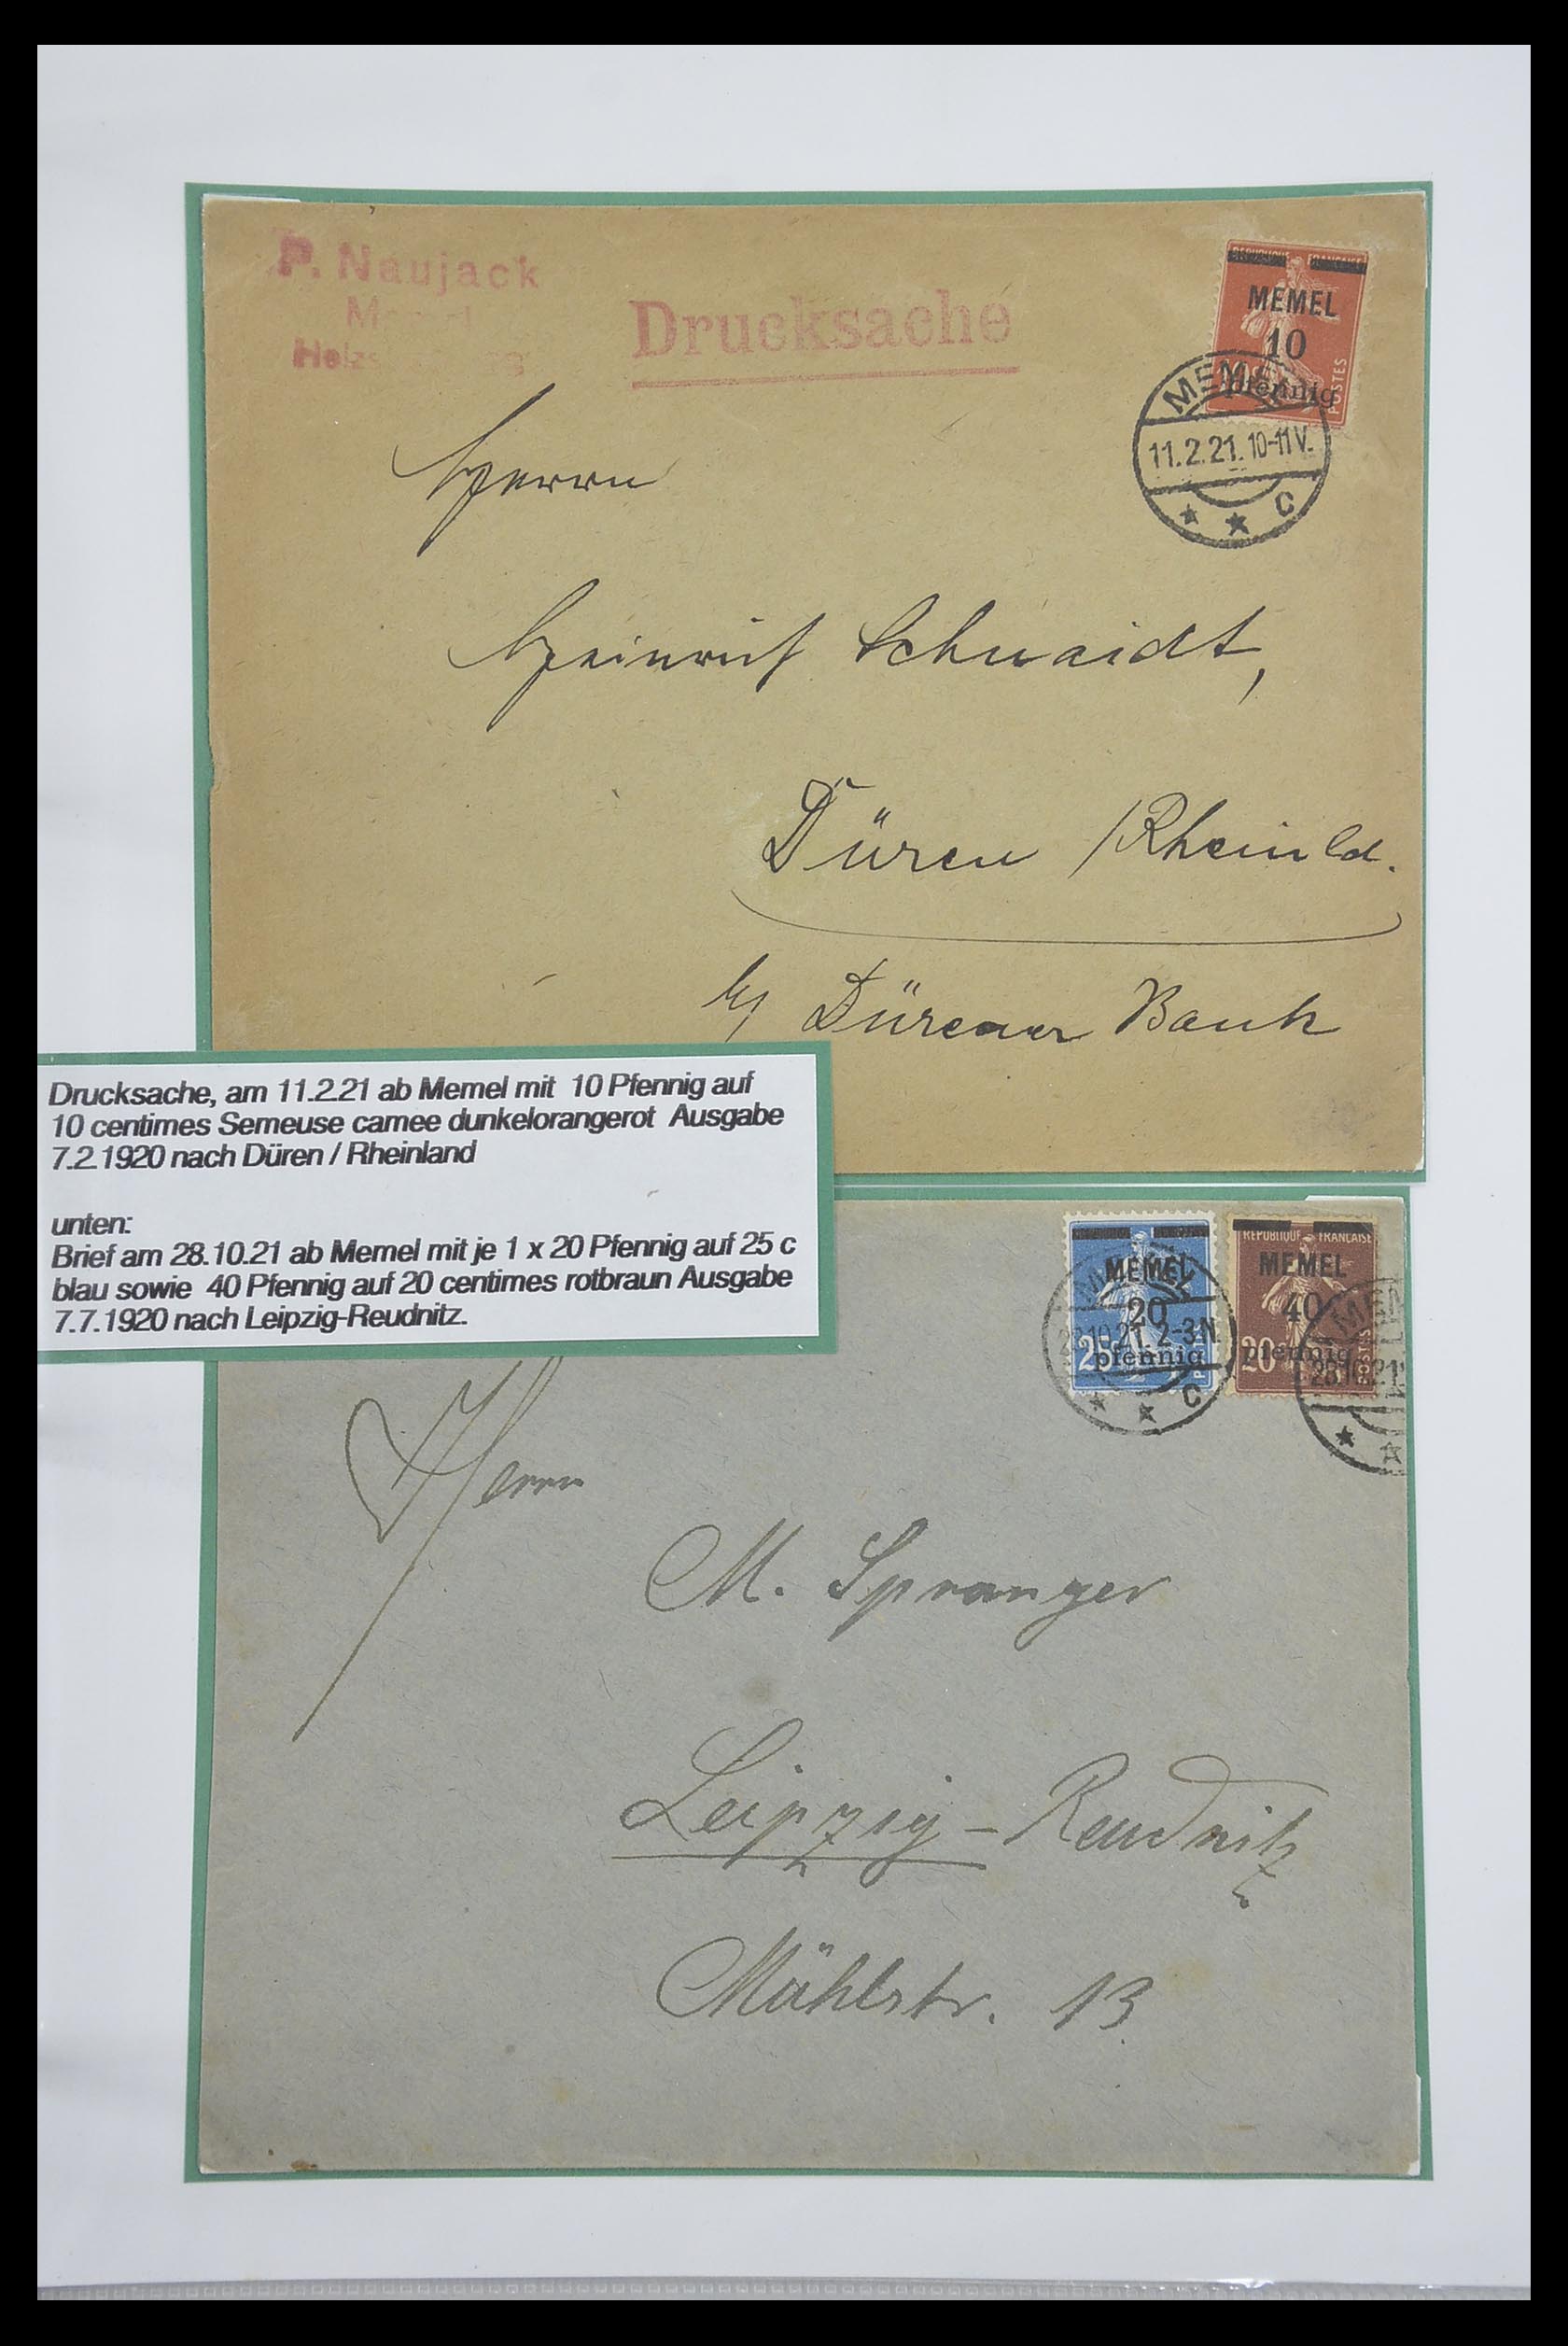 P. Naujack
Drucksache
REPUBLIQUE FRANÇAISE
MEMEL
10
pfennig
POSTES
MEMEL
11.2.21. 10-11 V.
C
Herrn
Heinrich Schmidt,
Düren /Rheinld.
Dürener Bank
Drucksache, am 11.2.21 ab Memel mit 10 Pfennig auf
10 centimes Semeuse camee dunkelorangerot Ausgabe
7.2.1920 nach Düren / Rheinland
unten:
Brief am 28.10.21 ab Memel mit je 1 x 20 Pfennig auf 25 c
blau sowie 40 Pfennig auf 20 centimes rotbraun Ausgabe
7.7.1920 nach Leipzig-Reudnitz.
MEMEL
20
25c
pfennig
28.10.21. 2-3 N.
C
REPUBLIQUE FRANÇAISE
MEMEL
40
20c
pfennig
POSTES
28.10.21
Herrn
M. Spranger
Leipzig - Reudnitz
Mühlstr. 13